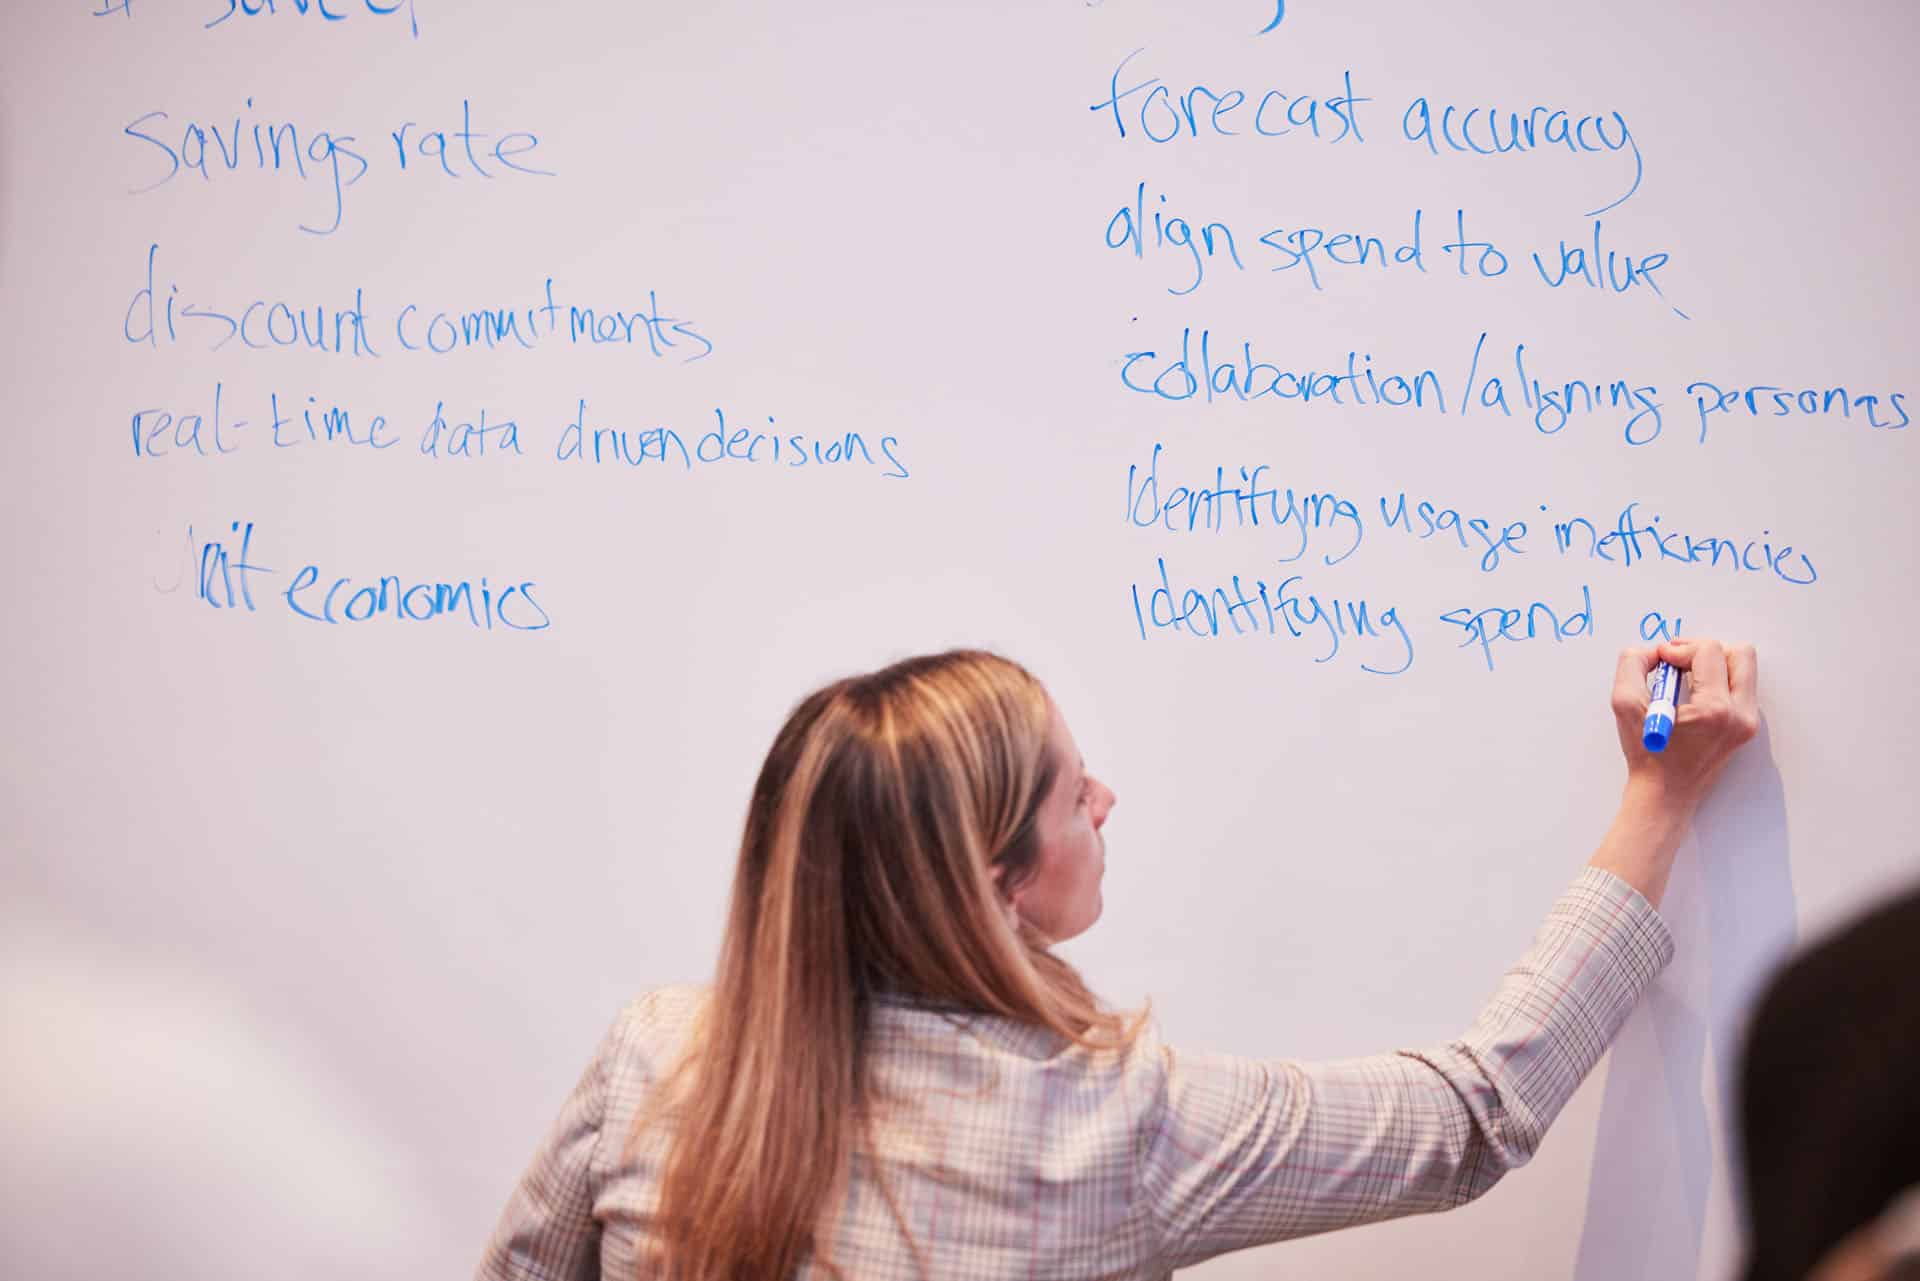 savings rate
discount commitments
real-time data driven decisions
unit economics
forecast accuracy
align spend to value
collaboration/aligning personas
Identifying usage inefficiencies
Identifying spend